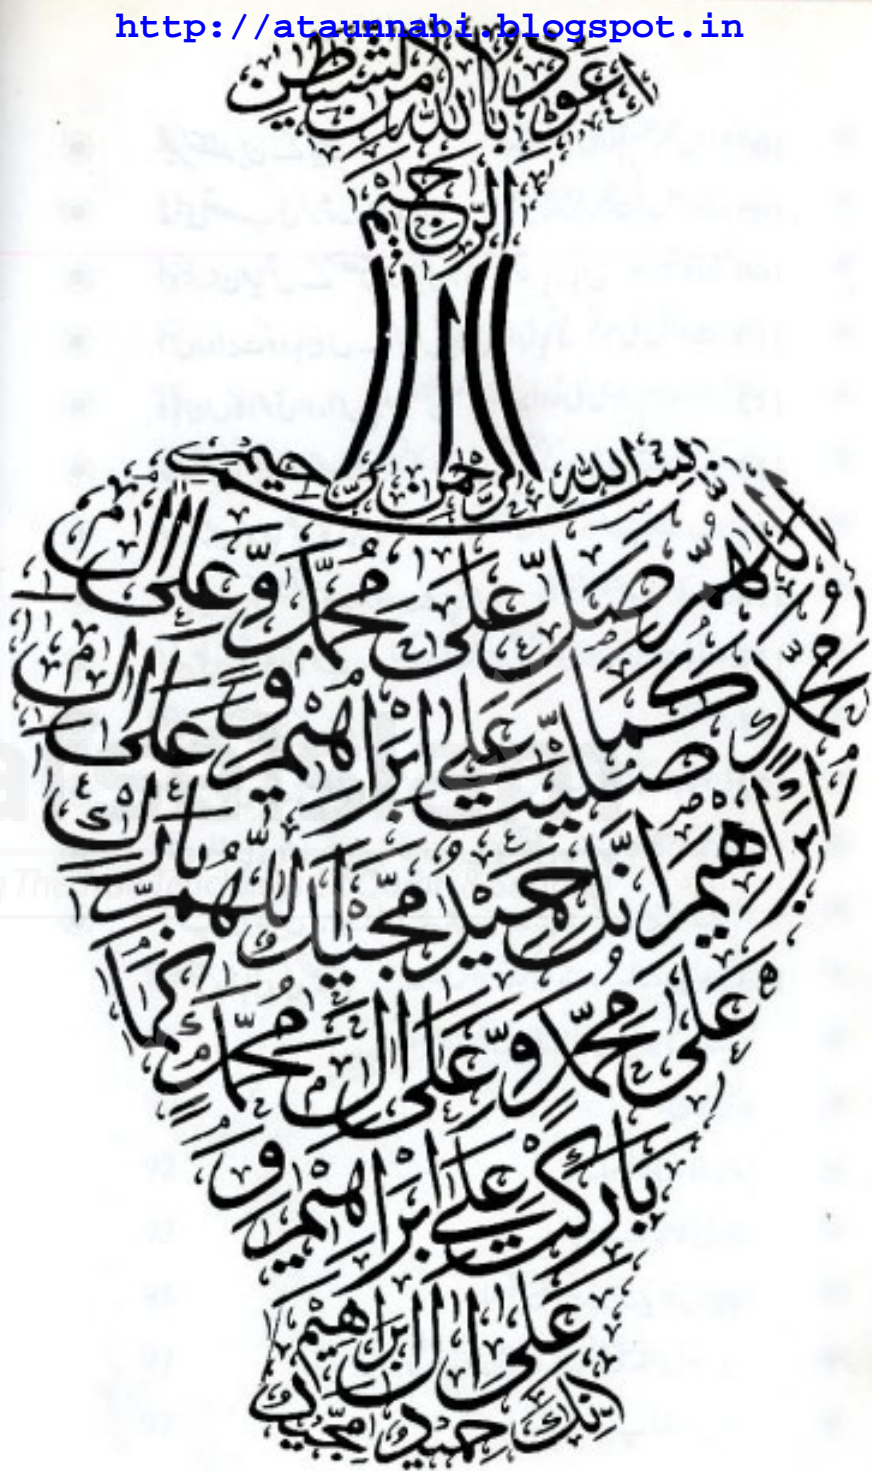 http://ataunnabi.blogspot.in
اعوذ بالله من الشيطن
الرجيم
بسم الله الرحمن الرحيم
اللهم صل على محمد وعلى ال
محمد كما صليت على ابراهيم وعلى ال
ابراهيم انك حميد مجيد اللهم بارك
على محمد وعلى ال محمد كما
باركت على ابراهيم و
على ال ابراهيم
انك حميد مجيد